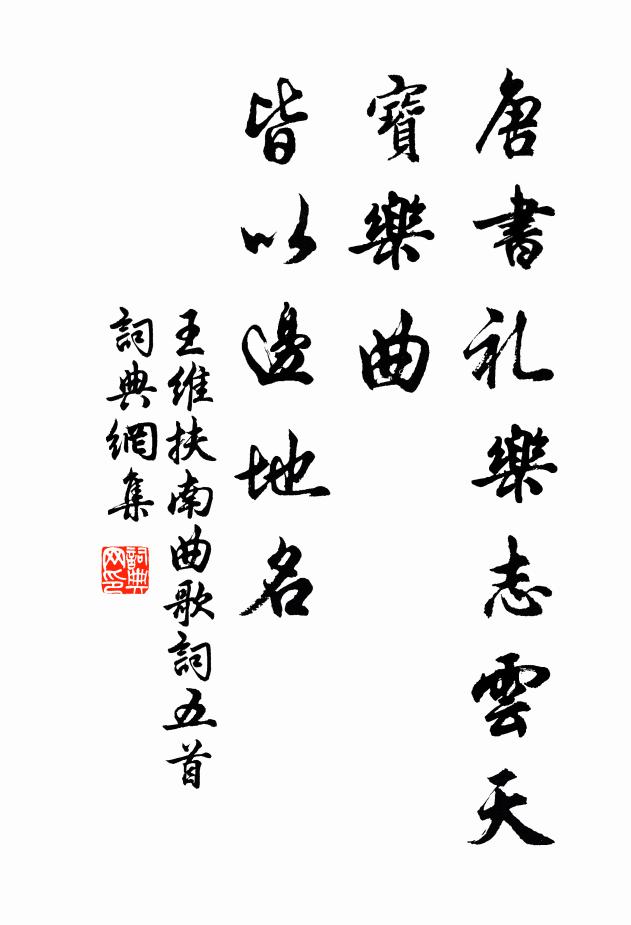 唐書礼樂志雲天
寶樂曲
皆以邊地名
王維扶南曲歌詞五首
詞典網集
詞典
网印